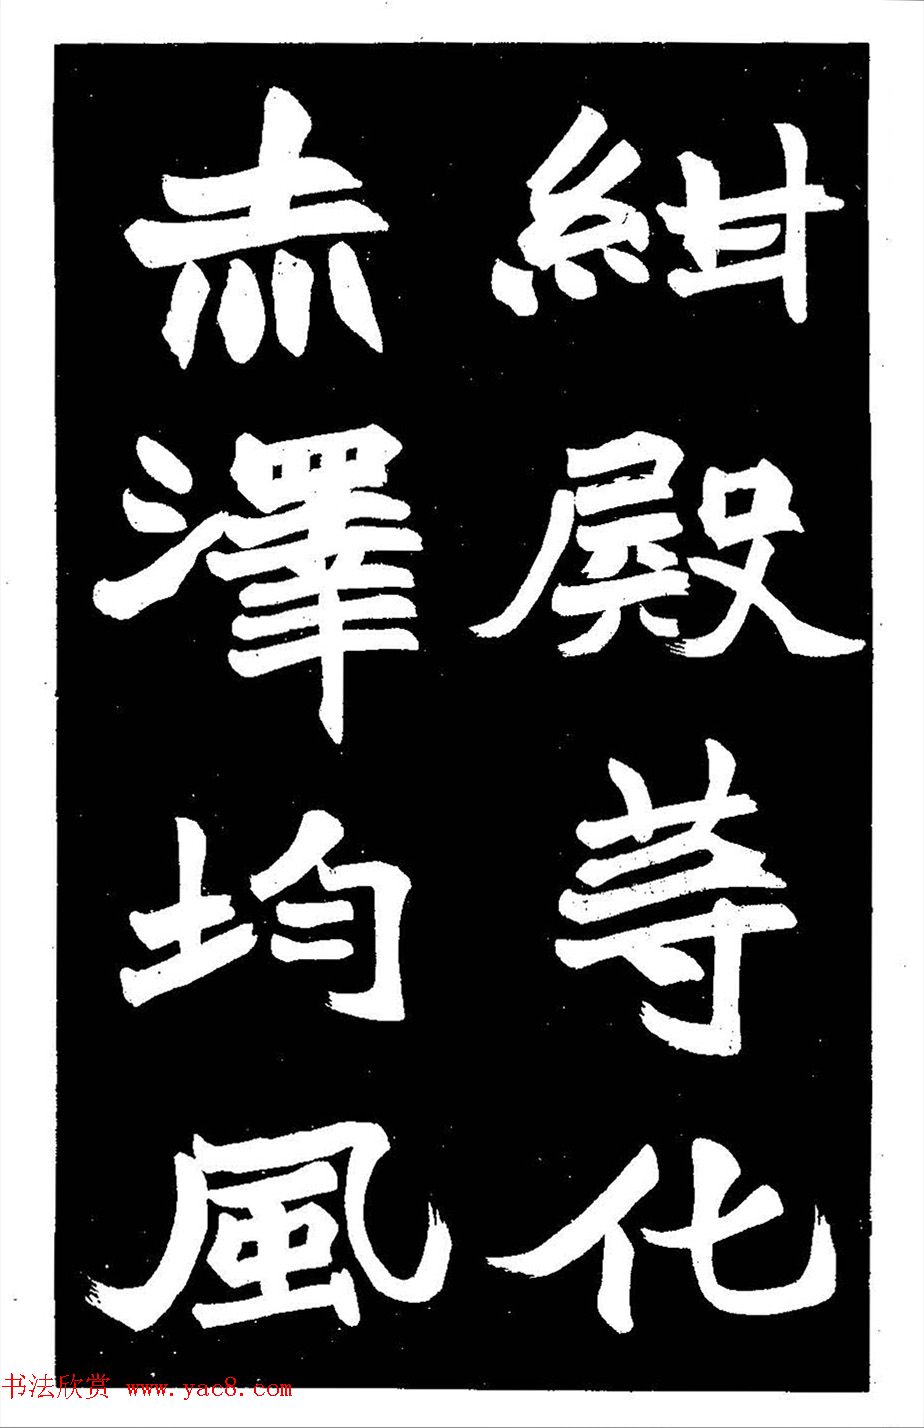 紺殿䓁化
赤澤均風
书法欣赏 www.yac8.com